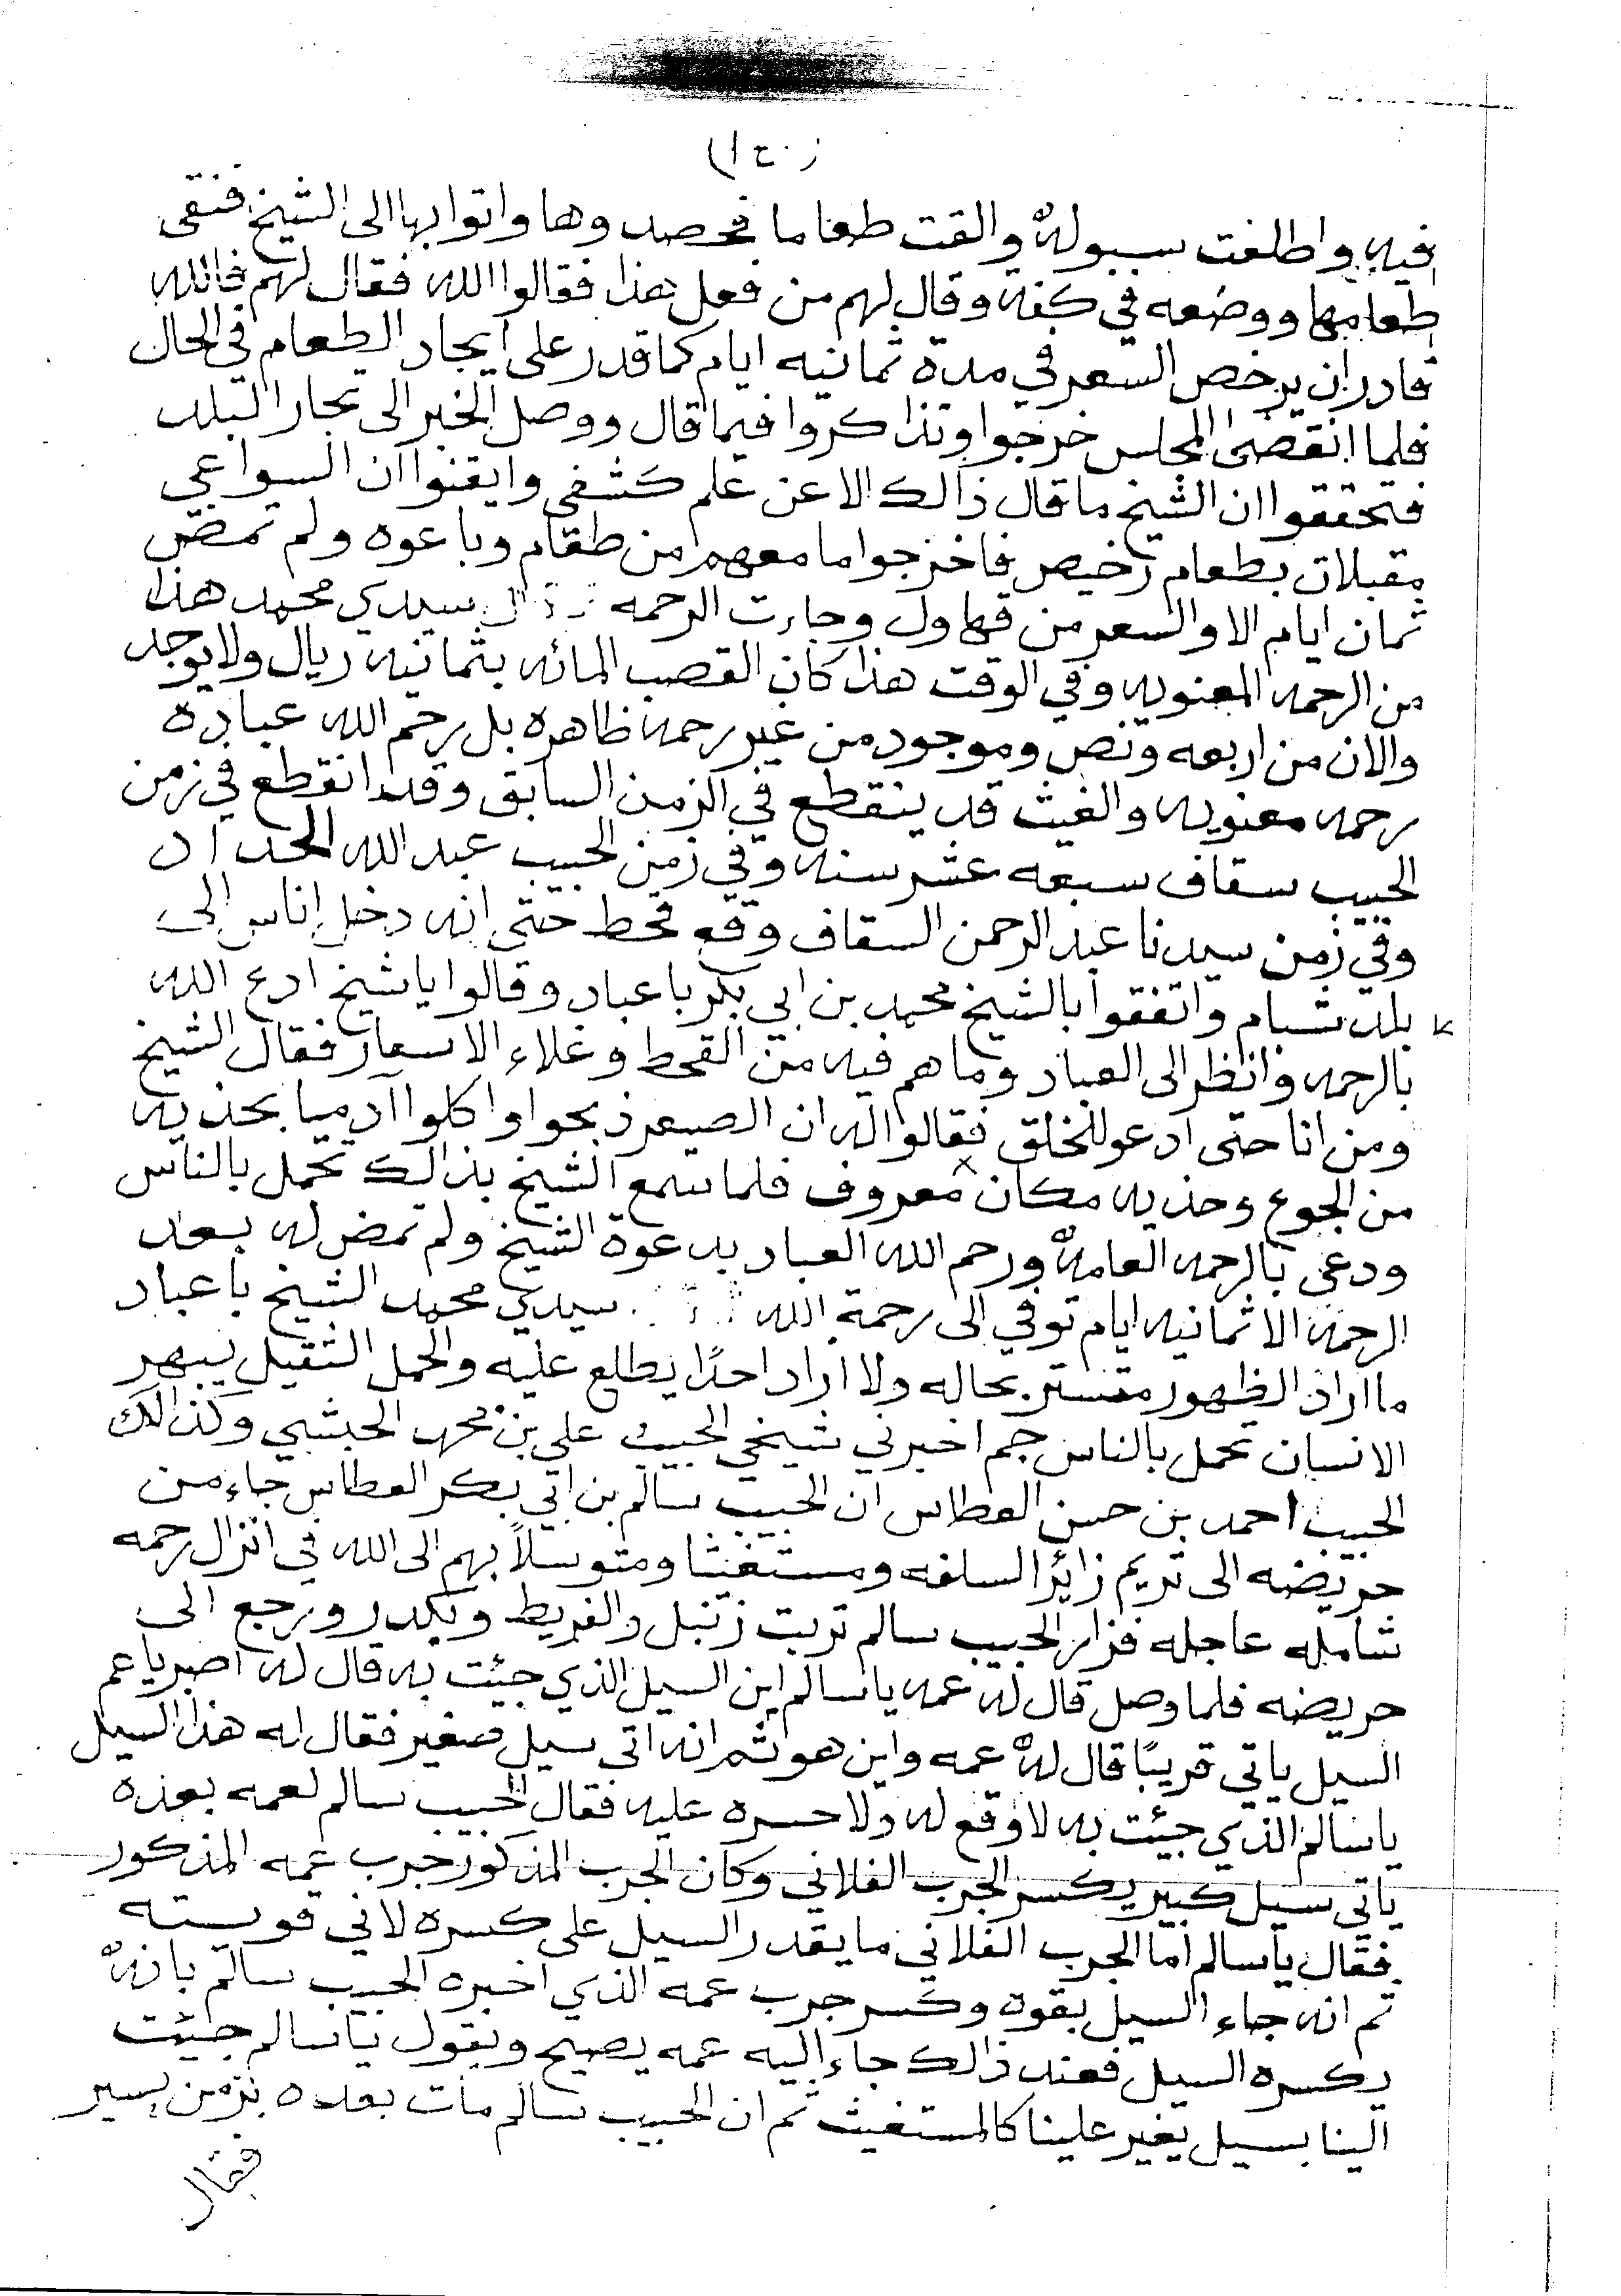 فيه واطلعت سبوله والقت طعاما فحصدوها واتوا بها الى الشيخ فنقى
طعامها ووضعه في كفه وقال لهم من فعل هذا فقالوا الله فقال لهم فالله
قادر ان يرخص السعر في مدة ثمانيه ايام كما قدر على ايجاد الطعام في الحال
فلما انقضى المجلس خرجوا وتذاكروا فيما قال ووصل الخبر الى تجار البلد
فتحققوا ان الشيخ ما قال ذالك الا عن علم كشفي وايقنوا ان السواعي
مقبلات بطعام رخيص فاخرجوا ما معهم من طعام وباعوه ولم تمض
ثمان ايام الا والسعر من قهاول وجاءت الرحمه قال سيدي محمد هذا
من الرحمه المعنويه وفي الوقت هذا كان القصب المائه بثمانيه ريال ولا يوجد
والان من اربعه ونص وموجود من غير رحمة ظاهره بل رحم الله عباده
رحمه معنويه والغيث قد ينقطع في الزمن السابق وقد انقطع في زمن
الحبيب سقاف سبعه عشر سنه وفي زمن الحبيب عبد الله الحداد
وفي زمن سيدنا عبد الرحمن السقاف وقع قحط حتى انه دخل اناس الى
بلد شبام واتفقوا بالشيخ محمد بن ابي بكر باعباد وقالوا يا شيخ ادع الله
بالرحمه وانظر الى العباد وما هم فيه من القحط وغلاء الاسعار فقال الشيخ
ومن انا حتى ادعو للخلق فقالوا له ان الصيعر ذبحوا واكلوا آدميا بحذيه
من الجوع وحذيه مكان معروف فلما سمع الشيخ بذالك تحمل بالناس
ودعى بالرحمه العامه ورحم الله العباد بدعوة الشيخ ولم تمض له بعد
الرحمة الا ثمانيه ايام توفي الى رحمة الله سيدي محمد الشيخ باعباد
ما اراد الظهور متستر بحاله ولا اراد احدًا يطلع عليه والحمل الثقيل يبهر
الانسان تحمل بالناس جم اخبرني شيخي الحبيب علي بن محمد الحبشي وكذالك
الحبيب احمد بن حسن العطاس ان الحبيب سالم بن ابي بكر العطاس جاء من
حريضه الى تريم زائرًا لسلفه ومستغيثا ومتوسلاً بهم الى الله في انزال رحمه
شامله عاجله فزار الحبيب سالم تربت زنبل والفريط وبكدر ورجع الى
حريضه فلما وصل قال له عمه يا سالم اين السيل الذي جيئت به قال له اصبر يا عم
السيل ياتي قريبًا قال له عمه واين هو ثم انه اتى سيل صغير فقال له هذا السيل
يا سالم الذي جيئت به لا وقع له ولا حسره عليه فقال الحبيب سالم لعمه بعده
ياتي سيل كبير يكسر الجرب الفلاني وكان الجرب المذكور جرب عمه المذكور
فقال يا سالم اما الجرب الفلاني ما يقدر السيل على كسره لاني قويسته
ثم انه جاء السيل بقوه وكسر جرب عمه الذي اخبره الحبيب سالم بانه
يكسره السيل فعند ذالك جاء اليه عمه يصيح ويقول يا سالم جيئت
الينا بسيل يغير علينا كالمستغيث ثم ان الحبيب سالم مات بعده بزمن يسير
فقال